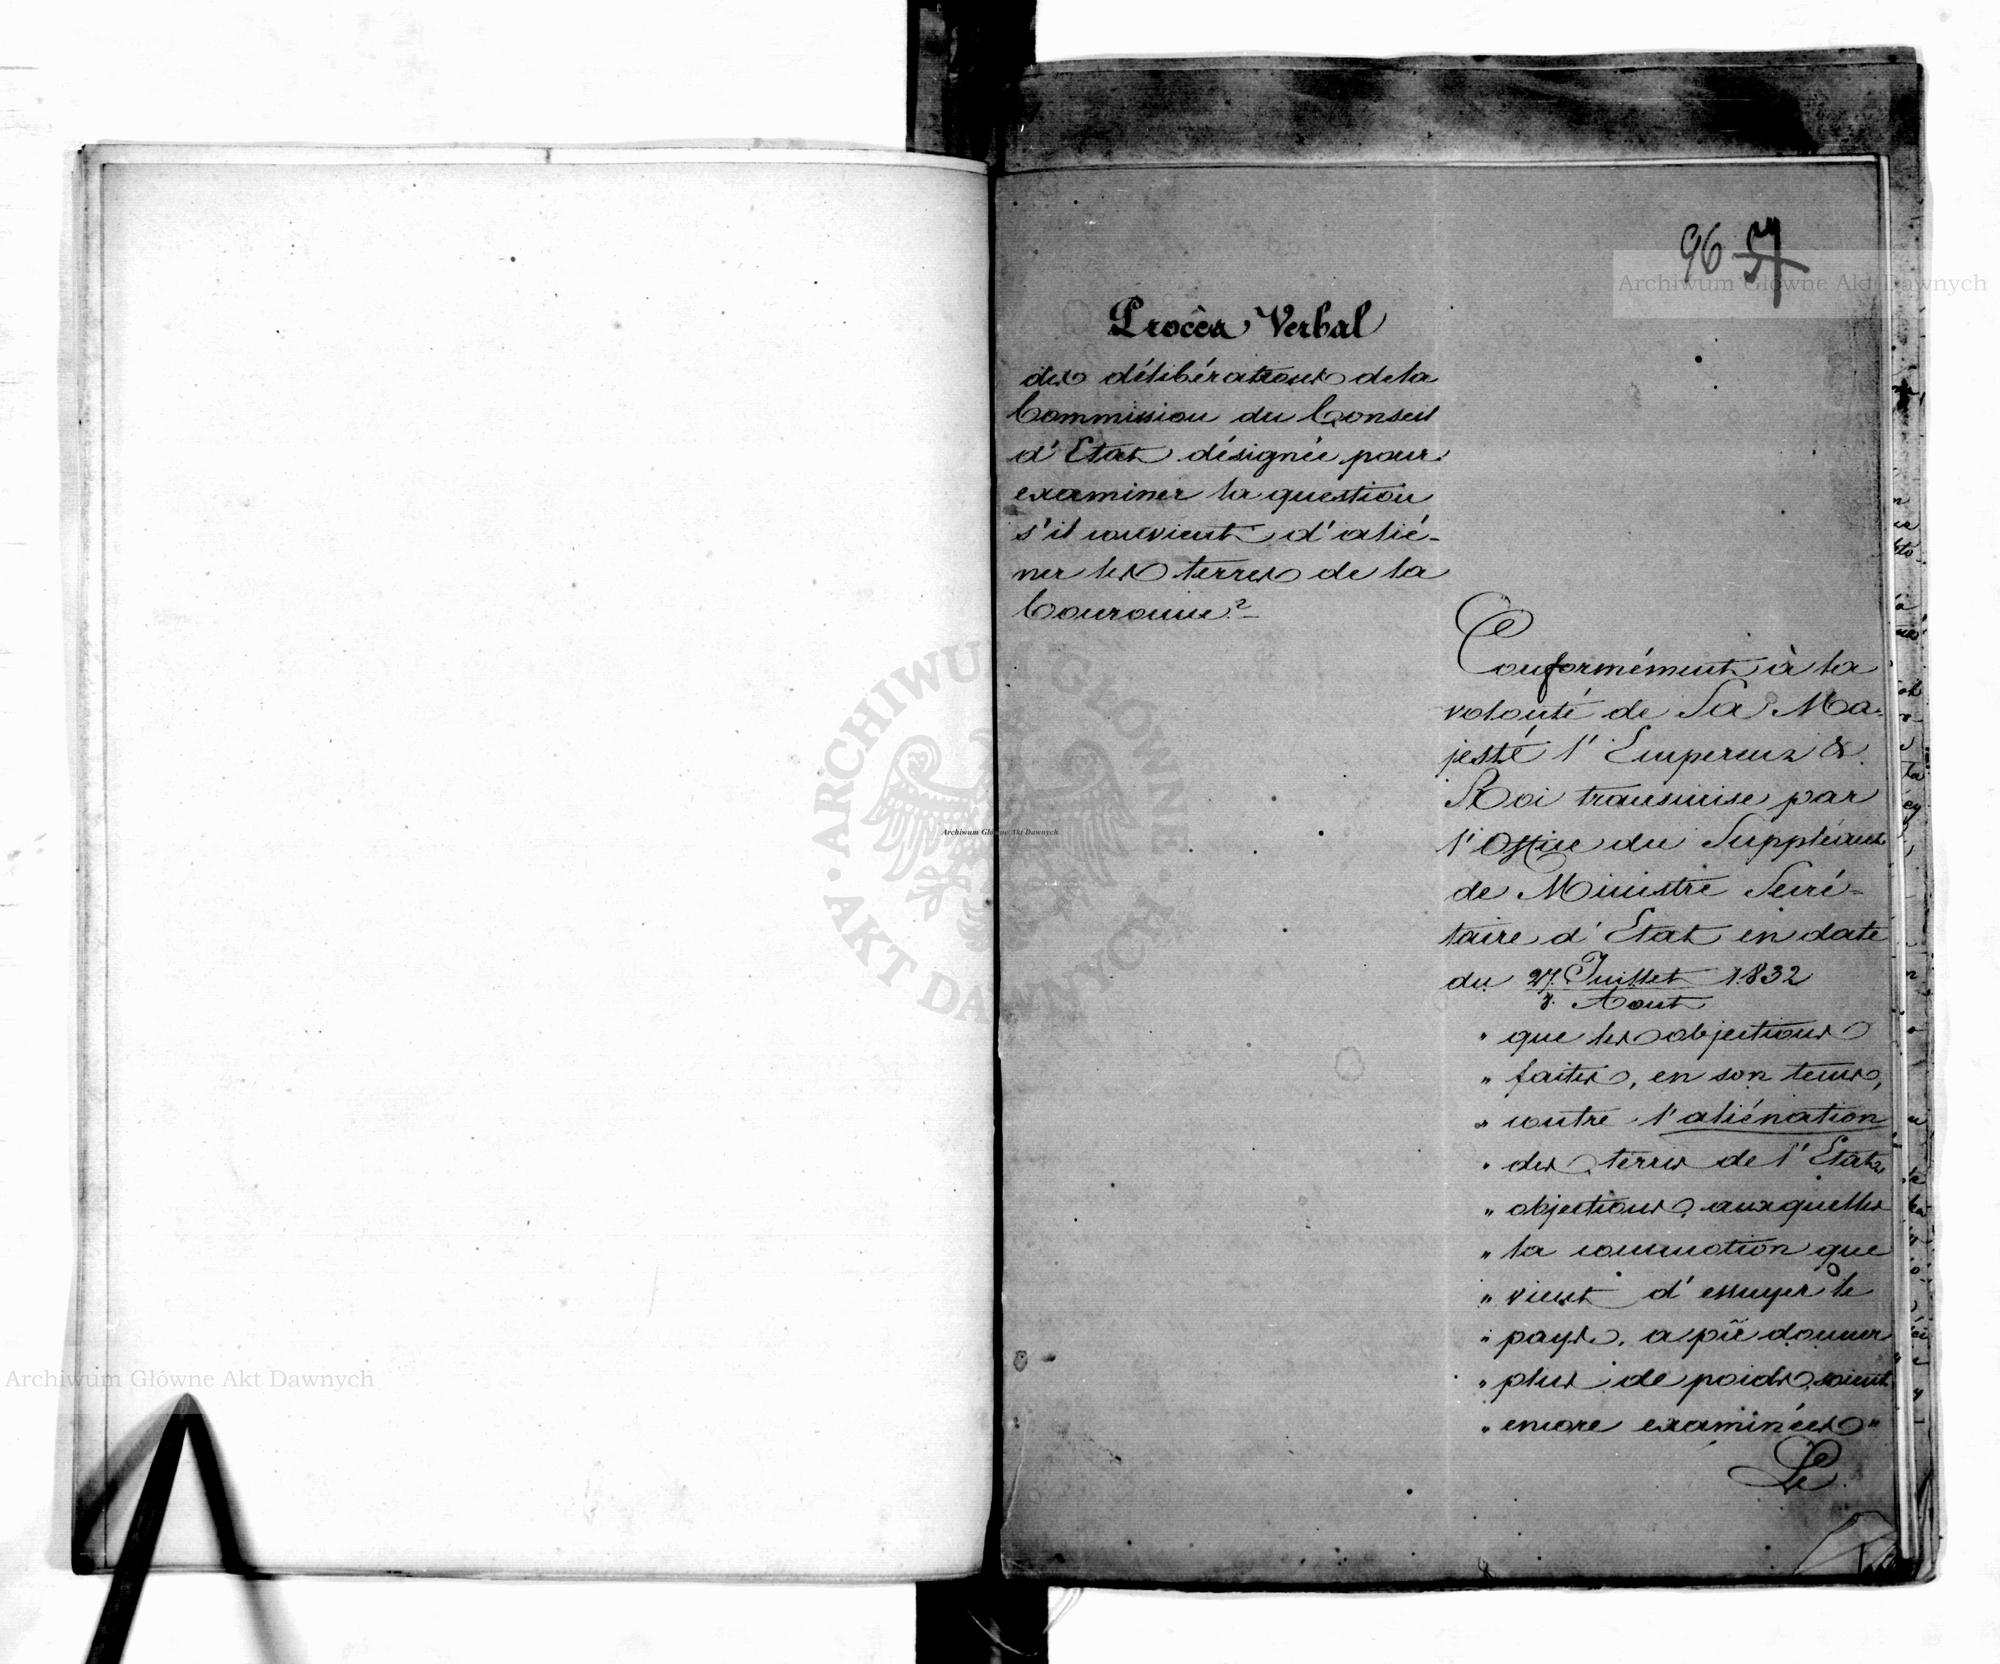 96 57
Procès Verbal
des délibérations de la
Commission du Conseil
d'Etat désignée pour
examiner la question
s'il convient d'alié-
ner les terres de la
Couronne?
Conformément à la
volonté de Sa Ma-
jesté l'Empereur &
Roi transmise par
l'Office du Suppléant
de Ministre Secré-
taire d'Etat en date
du 27. Juillet 1832
8. Aout
" que les objections
" faites, en son tems,
" contre l'aliénation
" des terres de l'Etat,
" objections, auxquelles
" la commotion que
" vient d'essuyer le
" pays, a pû donner
" plus de poids, soient
" encore examinées "
Le
Archiwum Główne Akt Dawnych
ARCHIWUM GŁÓWNE
AKT DAWNYCH
Archiwum Główne Akt Dawnych
Archiwum Główne Akt Dawnych